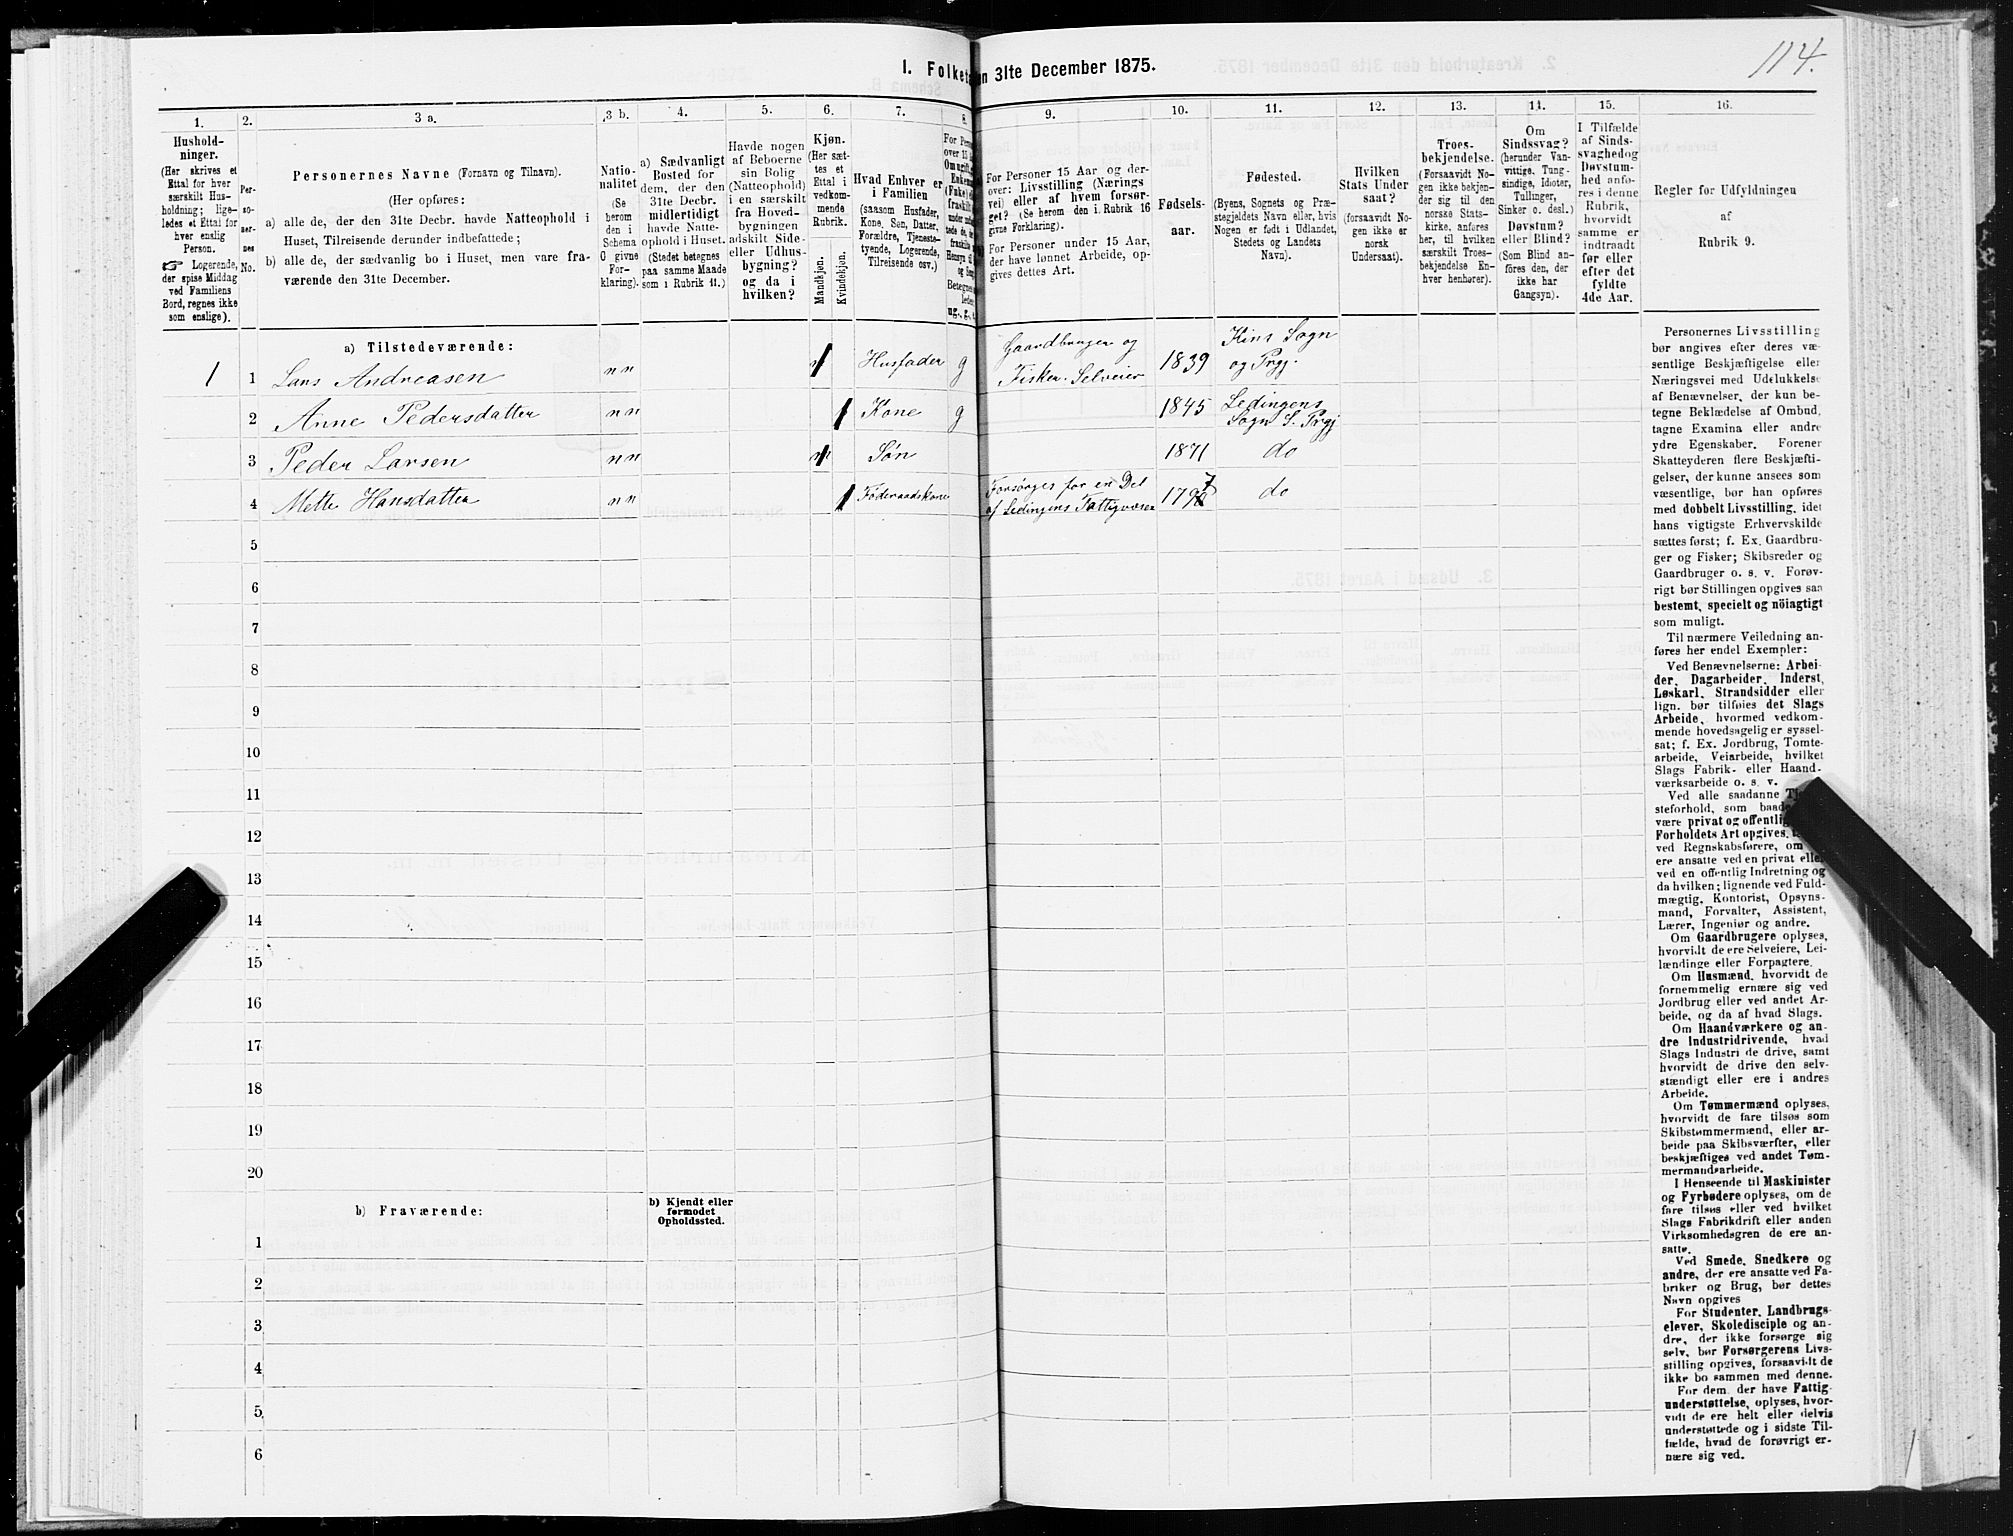 114.
I. Folket
en 31te December 1875.
1.
2.
3 a.
3 b.
4.
5.
6.
7.
8.
9.
10.
11.
12.
13.
14.
15.
16.
Hushold-
ninger.
(Her skrives et
Ettal for hver
særskilt Hus-
holdning; lige-
ledes et Ettal for
hver enslig
Person.
☞ Logerende,
der spise Middag
ved Familiens
Bord, regnes ikke
som enslige).
Per-
so-
ner-
nes
No.
Personernes Navne (Fornavn og Tilnavn).
(Her opføres:
a) alle de, der den 31te Decbr. havde Natteophold i
Huset, Tilreisende derunder indbefattede;
b) alle de, der sædvanlig bo i Huset, men vare fra-
værende den 31te December.
Natio-
nalitet
(Se
herom
den i
Schema
G givne
For-
klaring).
a) Sædvanligt
Bosted for
dem, der den
31te Decbr.
midlertidigt
havde Natte-
ophold i Huset.
(Stedet betegnes
paa samme Maade
som i Rubrik 11.)
Havde nogen
af Beboerne
sin Bolig
(Natteophold)
i en særskilt
fra Hoved-
bygningen
adskilt Side-
eller Udhus-
bygning?
og da i
hvilken?
Kjøn.
(Her sæt-
tes et
Ettal i
vedkom-
mende
Rubrik.
Mandkjøn.
Kvindekjøn.
Hvad Enhver er
i Familien
(saasom Husfader,
Kone, Søn, Datter,
Forældre, Tjeneste-
tyende, Logerende,
Tilreisende osv.)
For Pers
over 15
Om ugift,
Enkem
(Fnke) e
fraskilt
Hensyn til
og Seng
Betegnes
ledes
ug., g., e.
For Personer 15 Aar og der-
over: Livsstilling (Nærings
vei) eller af hvem forsør-
get? (Se herom den i. Rubrik 16
givne Forklaring).
For Personer under 15 Aar,
der have lønnet Arbeide, op-
gives dettes Art.
Fødsels-
aar.
Fødested.
(Byens, Sognets og Præ-
stegjeldets Navn eller, hvis
Nogen er født i Udlandet,
Stedets og Landets
Navn).
Hvilken
Stats Under
saat?
(forsaavidt No-
gen ikke er
norsk
Undersaat).
Troes-
bekjendelse.
(Forsaavidt No-
gen ikke bekjen-
der sig til den
norske Stats-
kirke, anføres
her, til hvilken
særskilt Troes-
bekjendelse En-
hver henhører).
Om
Sindssvag?
(herunder Van-
vittige, Tung-
sindige, Idioter,
Tullinger,
Sinker o. desl.)
Døvstum?
eller Blind?
(Som Blind an-
føres den, der
ikke har
Gangsyn).
I Tilfælde
af Sinds-
svaghedog
Døvstum-
hed anfø-
res i denne
Rubrik,
hvorvidt
samme er
indtraadt
før eller
efter det
fyldte
4de Aar.
Regler for Udfyldningen
af
Rubrik 9.
a) Tilstedeværende:
1 1 Lars Andreasen nn 1 Husfader g Gaardbruger og Fisker. Selveier 1839 Kins Sogn og Prgj.
2 Anne Pedersdatter nn 1 Kone g 1845 Ledingens Sogn S. Prgj
3 Peder Larsen nn 1 Søn 1871 do
4 Mette Hansdatter nn 1 Føderaadskone Forsørges for en Del af Ledingens Fattigvæsen 1797 do
5
6
7
8
9
10
11
12
13
14
15
16
17
18
19
20
b) Fraværende:
b) Kjendt eller
formodet
Opholdssted.
1
2
3
4
5
6
Personernes Livsstilling
bør angives efter deres væ-
sentlige Beskjæftigelse eller
Næringsvei med Udelukkelse
af Benævnelser, der kun be-
tegne Beklædelse af Ombud,
tagne Examina eller andre
ydre Egenskaber. Forener
Skatteyderen flere Beskjæfti-
gelser, der kunne ansees som
væsentlige, bør han opføres
med dobbelt Livsstilling, idet
hans vigtigste Erhvervskilde
sættes først; f. Ex. Gaardbru-
ger og Fisker; Skibsreder og
Gaardbruger o. s. v. Forøv-
rigt bør Stillingen opgives saa
bestemt, specielt og nöiagtigt
som muligt.
Til nærmere Veiledning an-
føres her endel Exempler:
Ved Benævnelserne: Arbei-
der, Dagarbeider, Inderst,
Løskarl, Strandsidder eller
lign. bør tilføies det Slags
Arbeide, hvormed vedkom-
mende hovedsagelig er syssel-
sat; f. Ex. Jordbrug, Tomte-
arbeide, Veiarbeide, hvilket
Slags Fabrik- eller Haand-
værksarbeide o. s. v.
Ved alle saadanne Tj
steforhold, som baade
være privat og offentlig
Forholdets Art opgives.
ved Regnskabsførere, om
ere ansatte ved en privat eller
ved en offentlig Indretning og
da hvilken; lignende ved Fuld-
mægtig, Kontorist, Opsyns-
mand, Forvalter, Assistent,
Lærer, Ingeniør og andre.
Om Gaardbrugere oplyses,
hvorvidt de ere Selveiere, Lei-
lændinge eller Forpagtere.
Om Husmænd, hvorvidt de
fornemmelig ernære sig ved
Jordbrug eller ved andet Ar-
beide, og da af hvad Slags.
Om Haandværkere og an-
dre Industridrivende, hvad
Slags Industri de drive, samt
hvorvidt de drive den selv-
stændigt eller ere i andres
Arbeide.
Om Tømmermænd oplyses,
hvorvidt de fare tilsøs som
Skibstømmermænd, eller ar-
beide paa Skibsværfter, eller
beskjæftiges ved andet Tøm-
mermandsarbeide.
I Henseende til Maskinister
og Fyrbødere oplyses, om de
fare tilsøs eller ved hvilket
Slags Fabrikdrift eller anden
Virksomhedsgren de ere an-
satte.
Ved Smede, Snedkere og
andre, der ere ansatte ved Fa-
briker og Brug, bør dettes
Navn opgives
For Studenter, Landbrugs-
elever, Skoledisciple og an-
dre, der ikke forsørge sig
selv, bør Forsørgerens Livs-
stilling opgives, forsaavidt de
ikke bo sammen med denne.
For dem, der have Fattig-
understøttelse, oplyses, hvor-
vidt de ere helt eller delvis
understøttede og i sidste Til-
fælde, hvad de forøvrigt er-
nære sig ved.